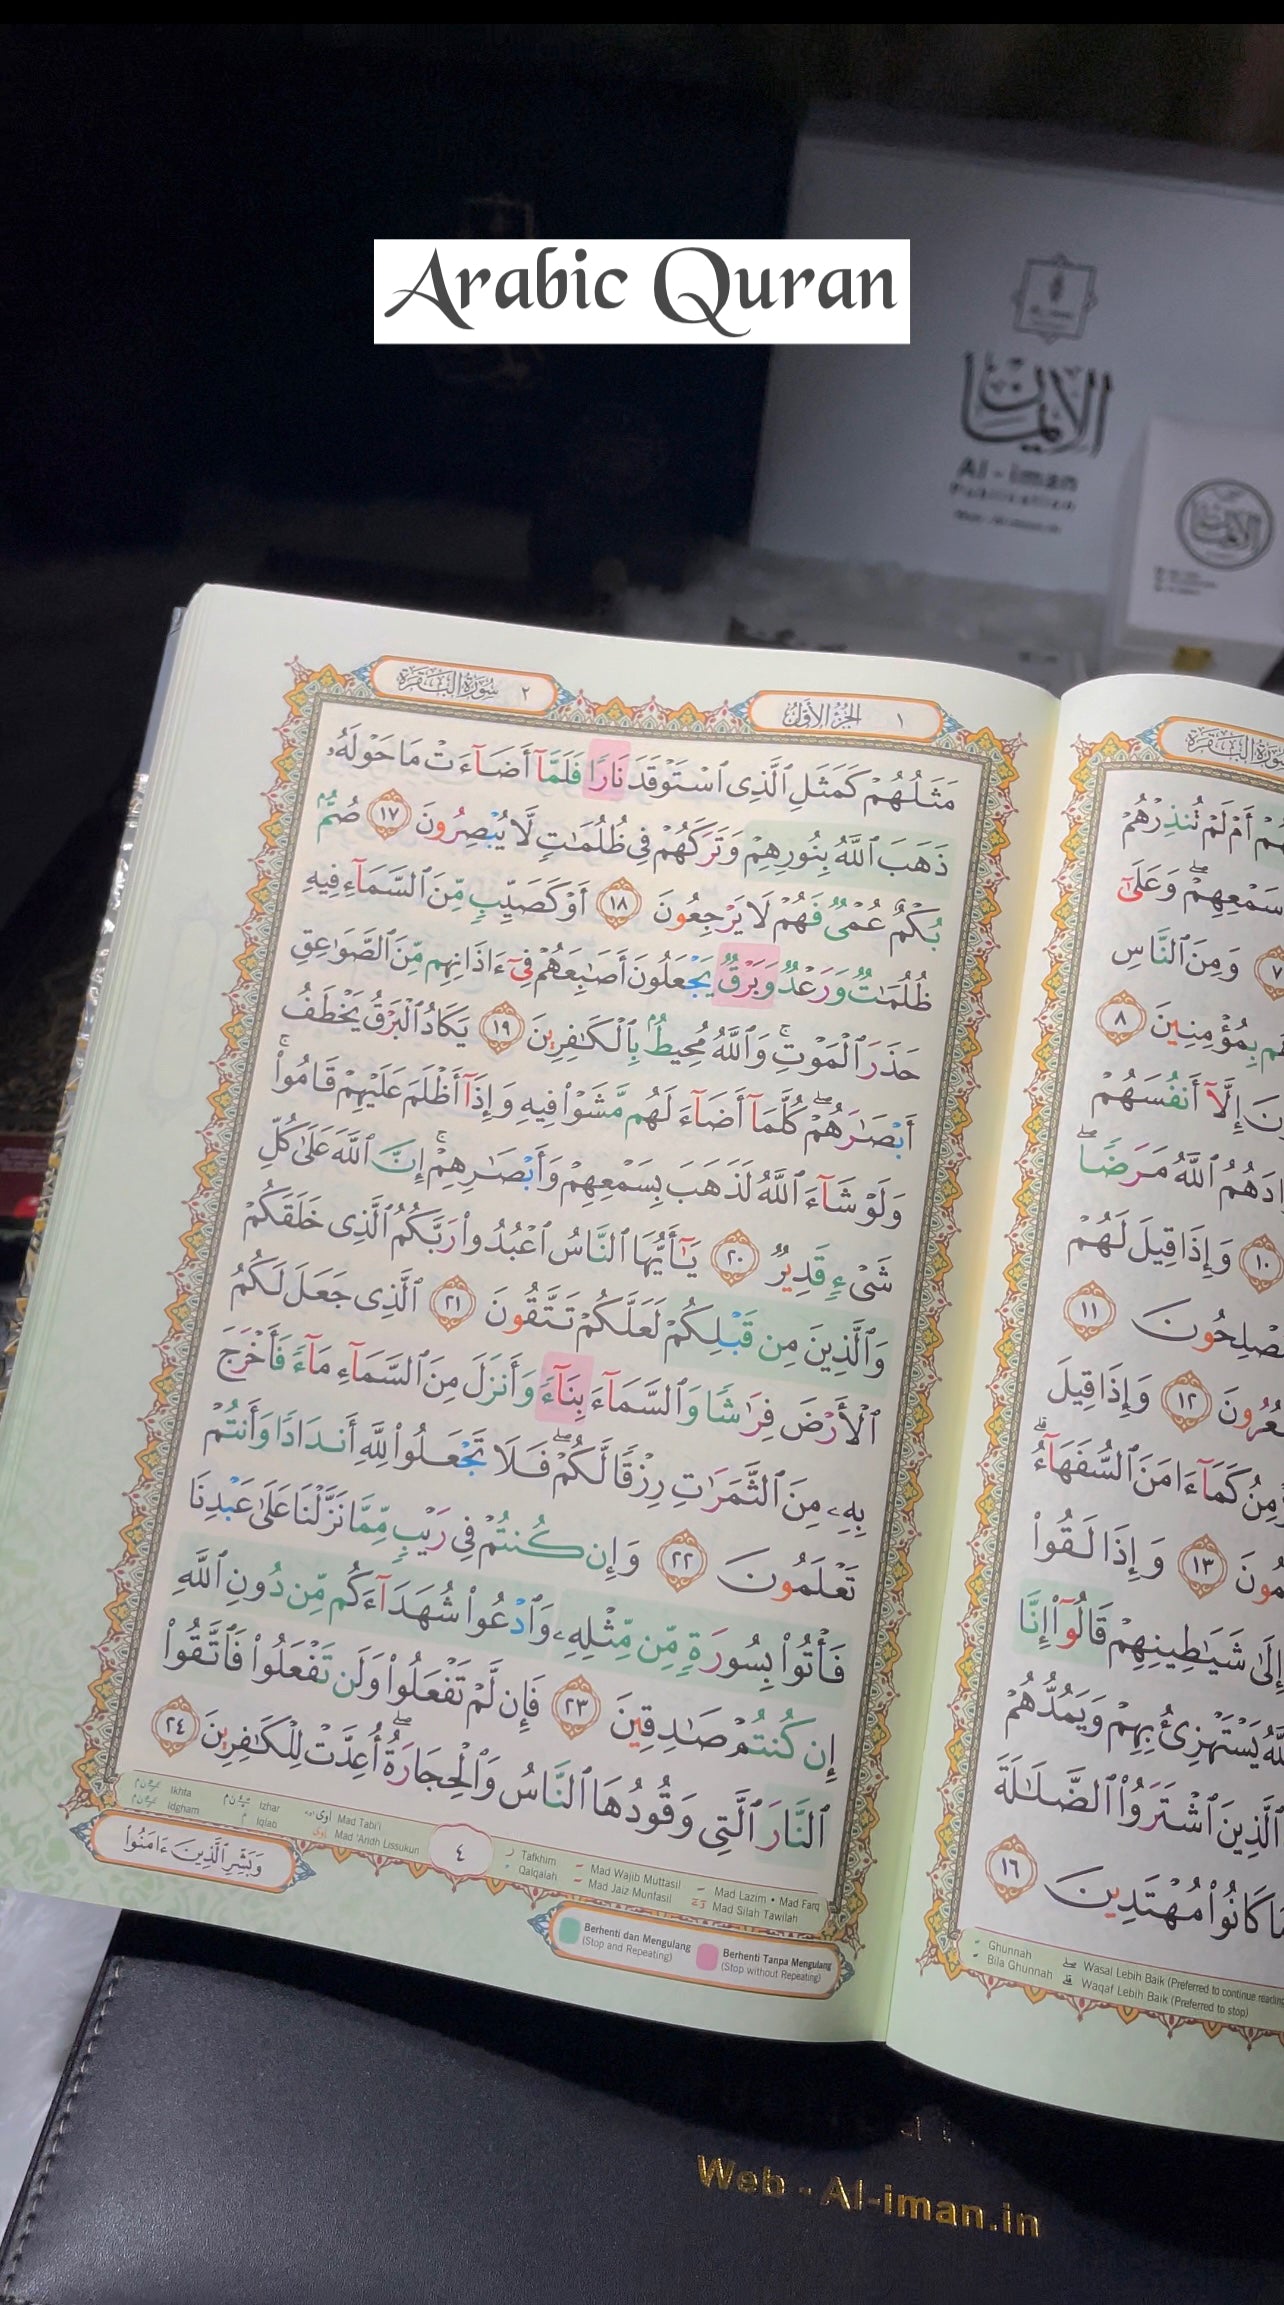 Arabic Quran
الإيمان
Al-iman
Publication
سُورَةُ البَقَرَة ٢
الجُزْءُ الأَوَّلُ ١
مَثَلُهُمْ كَمَثَلِ ٱلَّذِى ٱسْتَوْقَدَ نَارًا فَلَمَّآ أَضَآءَتْ مَا حَوْلَهُۥ
ذَهَبَ ٱللَّهُ بِنُورِهِمْ وَتَرَكَهُمْ فِى ظُلُمَـٰتٍ لَّا يُبْصِرُونَ ١٧ صُمٌّۢ
بُكْمٌ عُمْىٌ فَهُمْ لَا يَرْجِعُونَ ١٨ أَوْ كَصَيِّبٍ مِّنَ ٱلسَّمَآءِ فِيهِ
ظُلُمَـٰتٌ وَرَعْدٌ وَبَرْقٌ يَجْعَلُونَ أَصَـٰبِعَهُمْ فِىٓ ءَاذَانِهِم مِّنَ ٱلصَّوَٰعِقِ
حَذَرَ ٱلْمَوْتِ ۚ وَٱللَّهُ مُحِيطٌۢ بِٱلْكَـٰفِرِينَ ١٩ يَكَادُ ٱلْبَرْقُ يَخْطَفُ
أَبْصَـٰرَهُمْ ۖ كُلَّمَآ أَضَآءَ لَهُم مَّشَوْا۟ فِيهِ وَإِذَآ أَظْلَمَ عَلَيْهِمْ قَامُوا۟ ۚ
وَلَوْ شَآءَ ٱللَّهُ لَذَهَبَ بِسَمْعِهِمْ وَأَبْصَـٰرِهِمْ ۚ إِنَّ ٱللَّهَ عَلَىٰ كُلِّ
شَىْءٍ قَدِيرٌ ٢٠ يَـٰٓأَيُّهَا ٱلنَّاسُ ٱعْبُدُوا۟ رَبَّكُمُ ٱلَّذِى خَلَقَكُمْ
وَٱلَّذِينَ مِن قَبْلِكُمْ لَعَلَّكُمْ تَتَّقُونَ ٢١ ٱلَّذِى جَعَلَ لَكُمُ
ٱلْأَرْضَ فِرَٰشًا وَٱلسَّمَآءَ بِنَآءً وَأَنزَلَ مِنَ ٱلسَّمَآءِ مَآءً فَأَخْرَجَ
بِهِۦ مِنَ ٱلثَّمَرَٰتِ رِزْقًا لَّكُمْ ۖ فَلَا تَجْعَلُوا۟ لِلَّهِ أَندَادًا وَأَنتُمْ
تَعْلَمُونَ ٢٢ وَإِن كُنتُمْ فِى رَيْبٍ مِّمَّا نَزَّلْنَا عَلَىٰ عَبْدِنَا
فَأْتُوا۟ بِسُورَةٍ مِّن مِّثْلِهِۦ وَٱدْعُوا۟ شُهَدَآءَكُم مِّن دُونِ ٱللَّهِ
إِن كُنتُمْ صَـٰدِقِينَ ٢٣ فَإِن لَّمْ تَفْعَلُوا۟ وَلَن تَفْعَلُوا۟ فَٱتَّقُوا۟
ٱلنَّارَ ٱلَّتِى وَقُودُهَا ٱلنَّاسُ وَٱلْحِجَارَةُ ۖ أُعِدَّتْ لِلْكَـٰفِرِينَ ٢٤
Ikhfa Izhar Mad Tabi'i
Idgham Iqlab Mad 'Aridh Lissukun
٤
Tafkhim Mad Wajib Muttasil Mad Lazim • Mad Farq
Qalqalah Mad Jaiz Munfasil Mad Silah Tawilah
وَبَشِّرِ ٱلَّذِينَ ءَامَنُوا۟
Berhenti dan Mengulang
(Stop and Repeating)
Berhenti Tanpa Mengulang
(Stop without Repeating)
سُورَةُ البَقَرَة
أَمْ لَمْ تُنذِرْهُمْ
سَمْعِهِمْ ۖ وَعَلَىٰٓ
٧ وَمِنَ ٱلنَّاسِ
بِمُؤْمِنِينَ ٨
إِلَّآ أَنفُسَهُمْ
ٱللَّهُ مَرَضًا ۖ
١٠ وَإِذَا قِيلَ لَهُمْ
١١
١٢ وَإِذَا قِيلَ
كَمَآ ءَامَنَ ٱلسُّفَهَآءُ ۗ
١٣ وَإِذَا لَقُوا۟
إِلَىٰ شَيَـٰطِينِهِمْ قَالُوٓا۟ إِنَّا
يَسْتَهْزِئُ بِهِمْ وَيَمُدُّهُمْ
ٱلَّذِينَ ٱشْتَرَوُا۟ ٱلضَّلَـٰلَةَ
كَانُوا۟ مُهْتَدِينَ ١٦
Ghunnah Wasal Lebih Baik (Preferred to continue reading
Bila Ghunnah Waqaf Lebih Baik (Preferred to stop)
Web - Al-iman.in